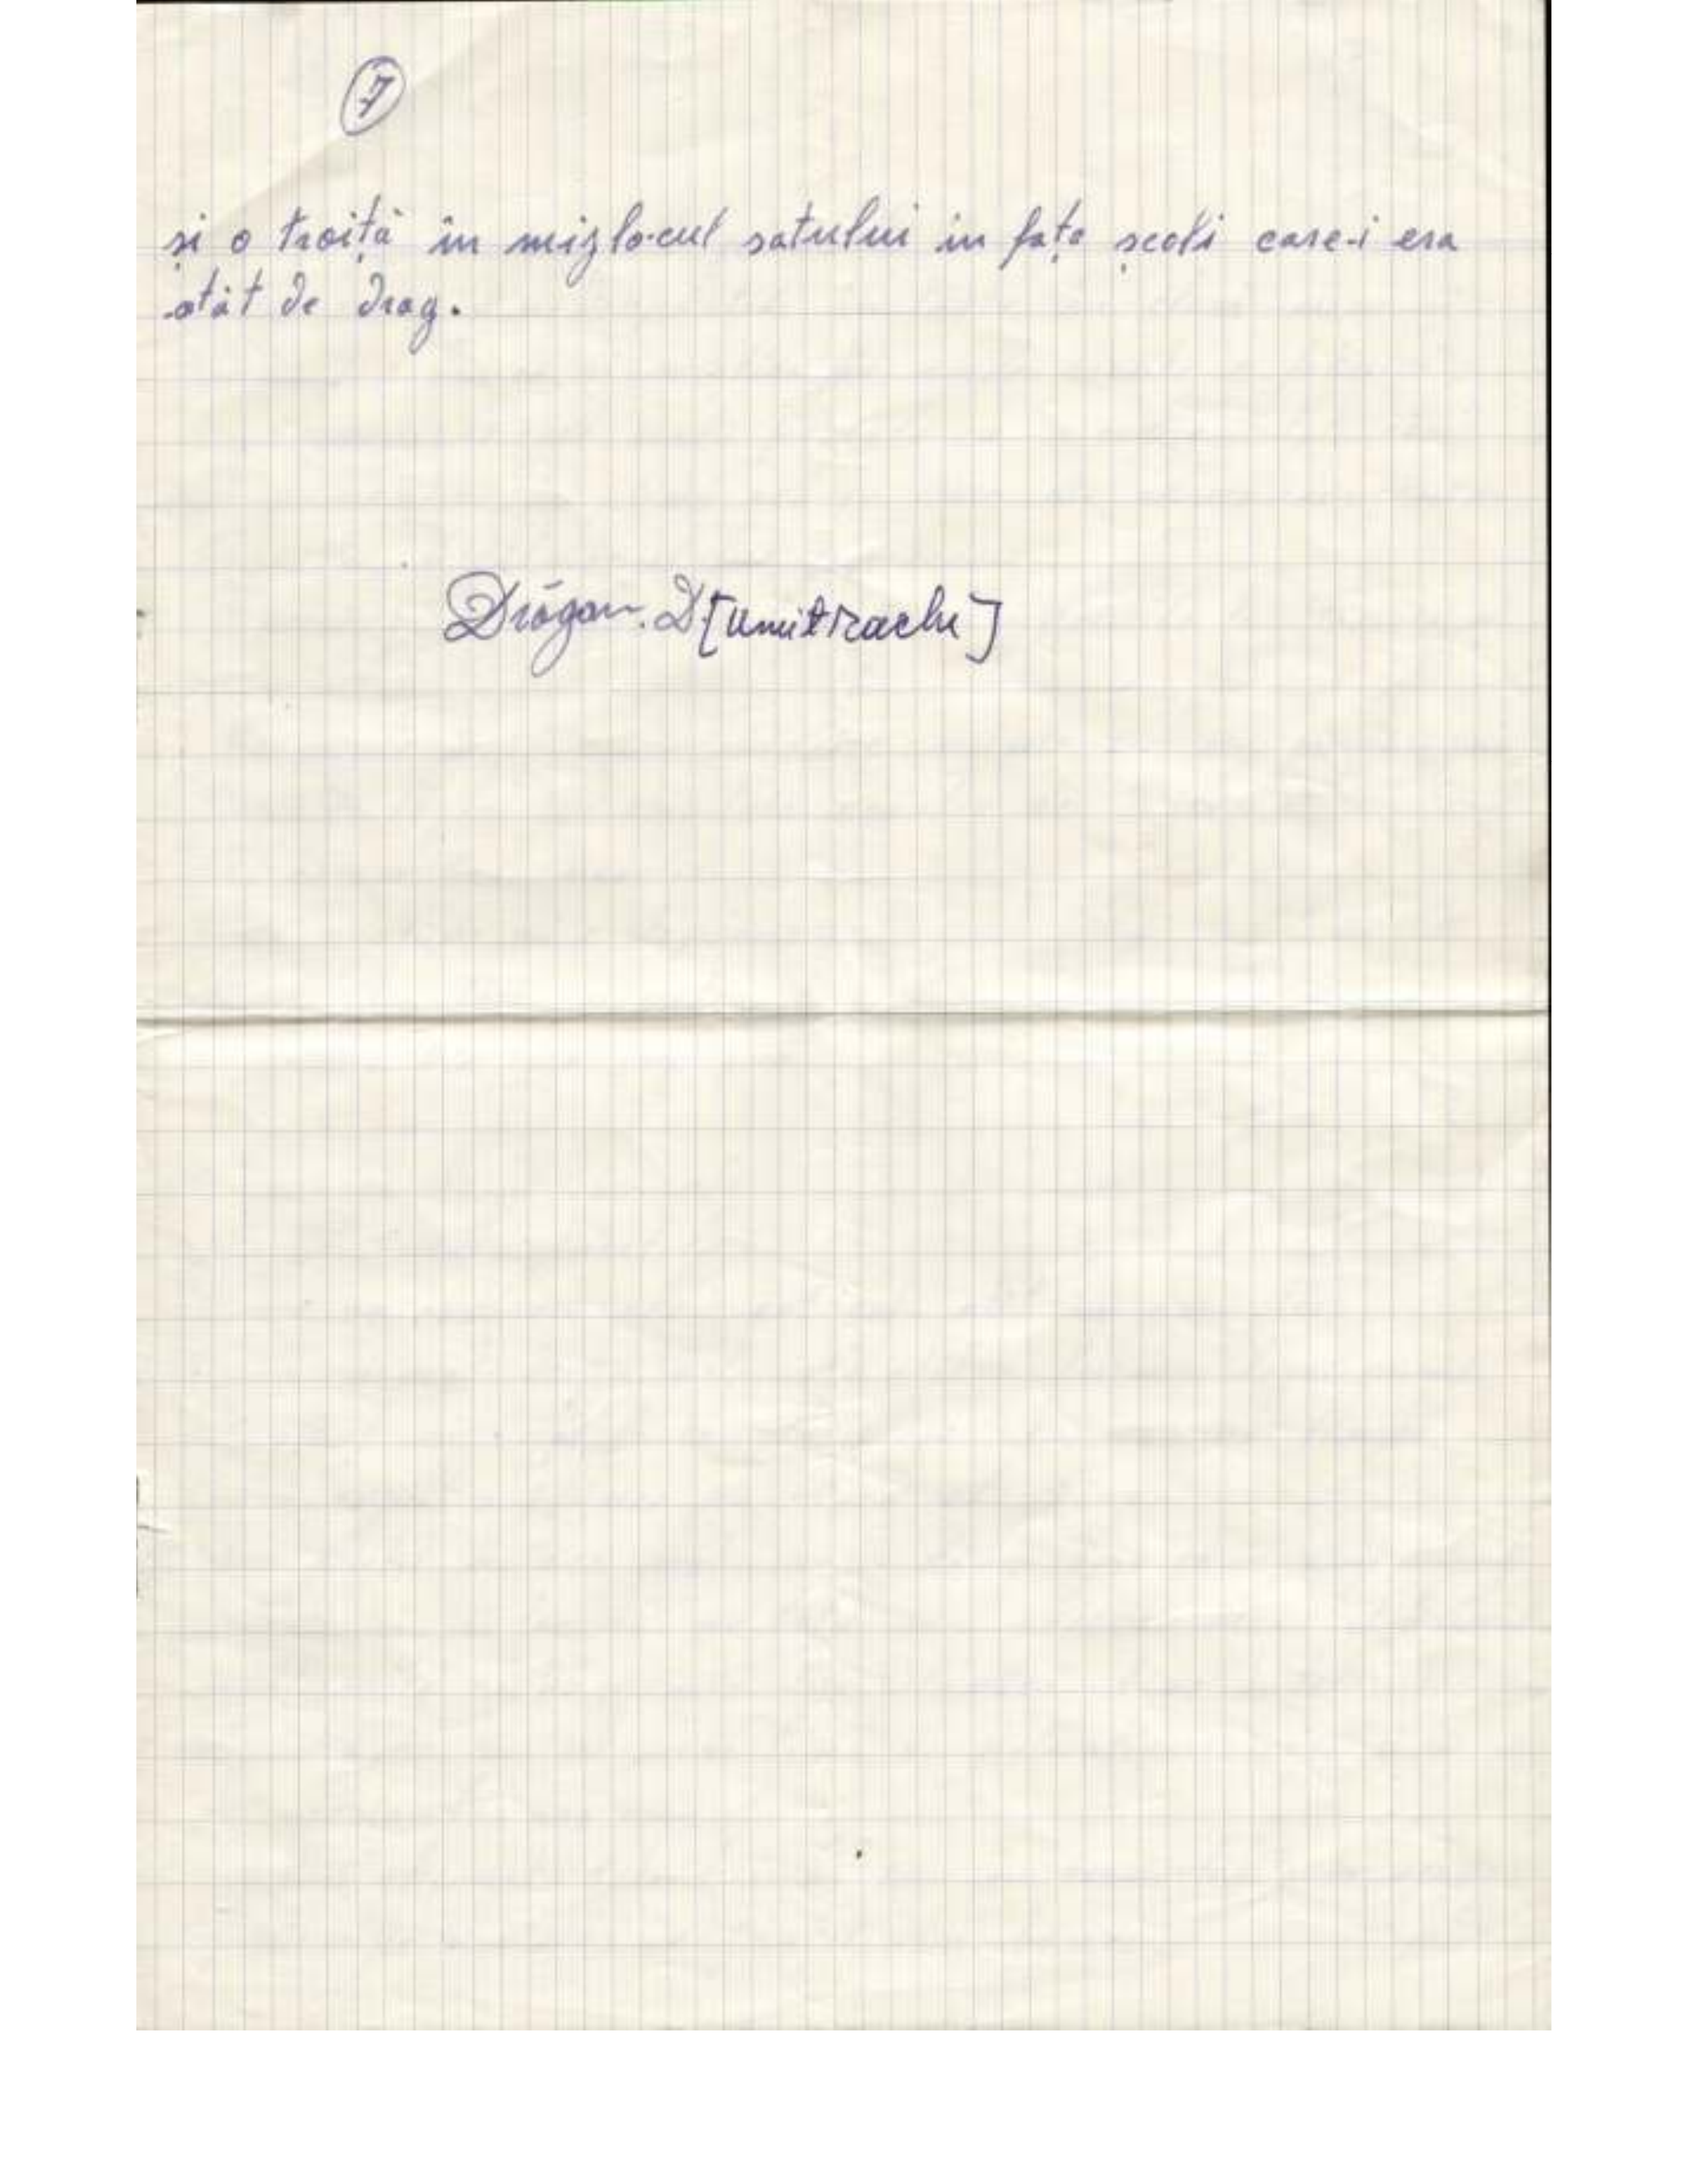 7
și o troiță în mizlocul satului în fața școli care-i era
atât de drag.
Drăgan. D[umitrache]